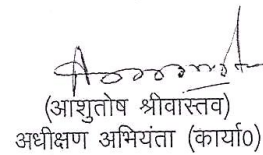 (आशुतोष श्रीवास्तव)
अधीक्षण अभियंता (कार्या0)